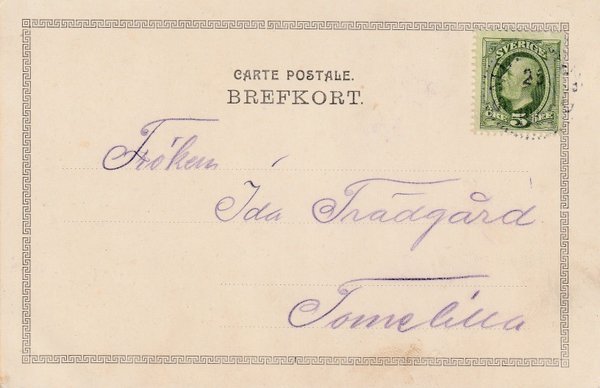 SVERIGE
ÖRE 5 ÖRE
CARTE POSTALE.
BREFKORT.
Fröken
Ida Trädgård
Tomelilla